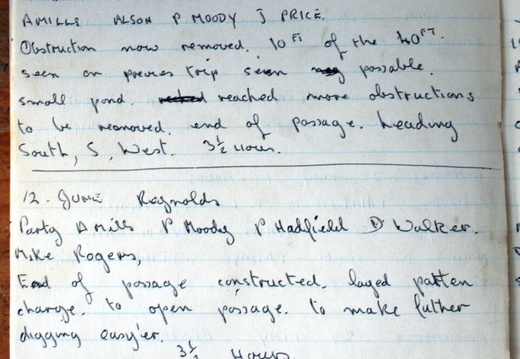 A MILLS ALSON P MOODY J PRICE.
Obstruction now removed. 10 FT of the 40 FT.
seen on previes trip seen possable.
small pond. reached more obstructions
to be reomoved. end of passage. heading
South, S, West. 3½ Hours.
12. JUNE Reynolds
Party A Mills P Moody P Hadfield D Walker.
Mike Rogers,
End of passage constructed. layed patten
charge. to open passage. to make futher
digging easy'er.
3½ Hours